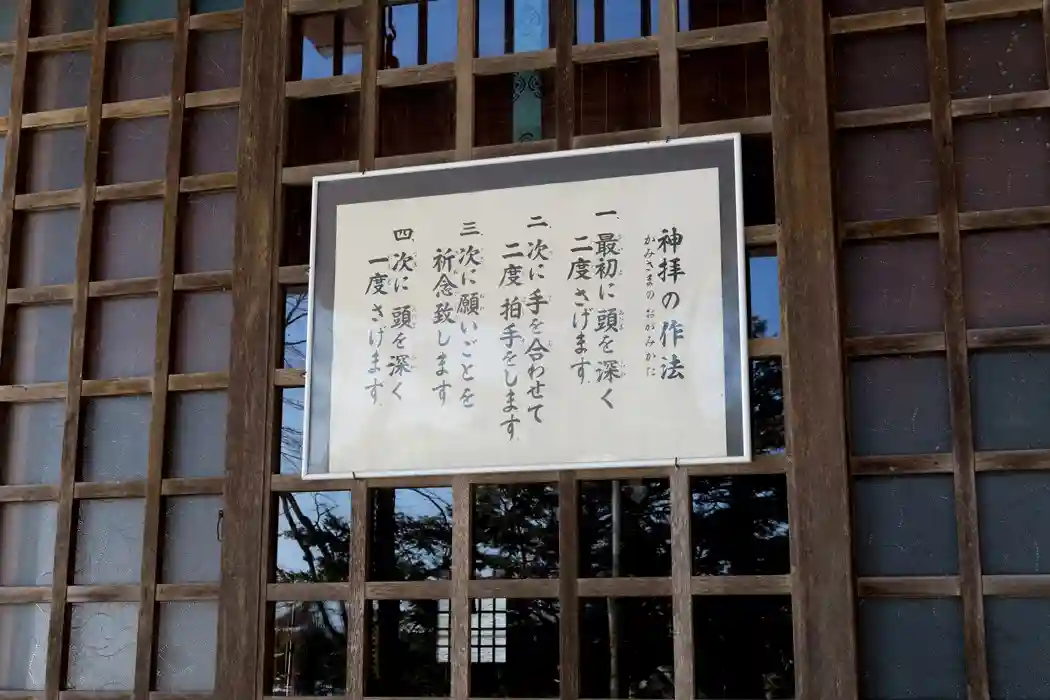 神拝の作法
かみさまの おがみかた
一、最初に 頭を 深く
二度 さげます
二、次に 手を 合わせて
二度 拍手を します
三、次に 願いごとを
祈念致します
四、次に 頭を 深く
一度 さげます